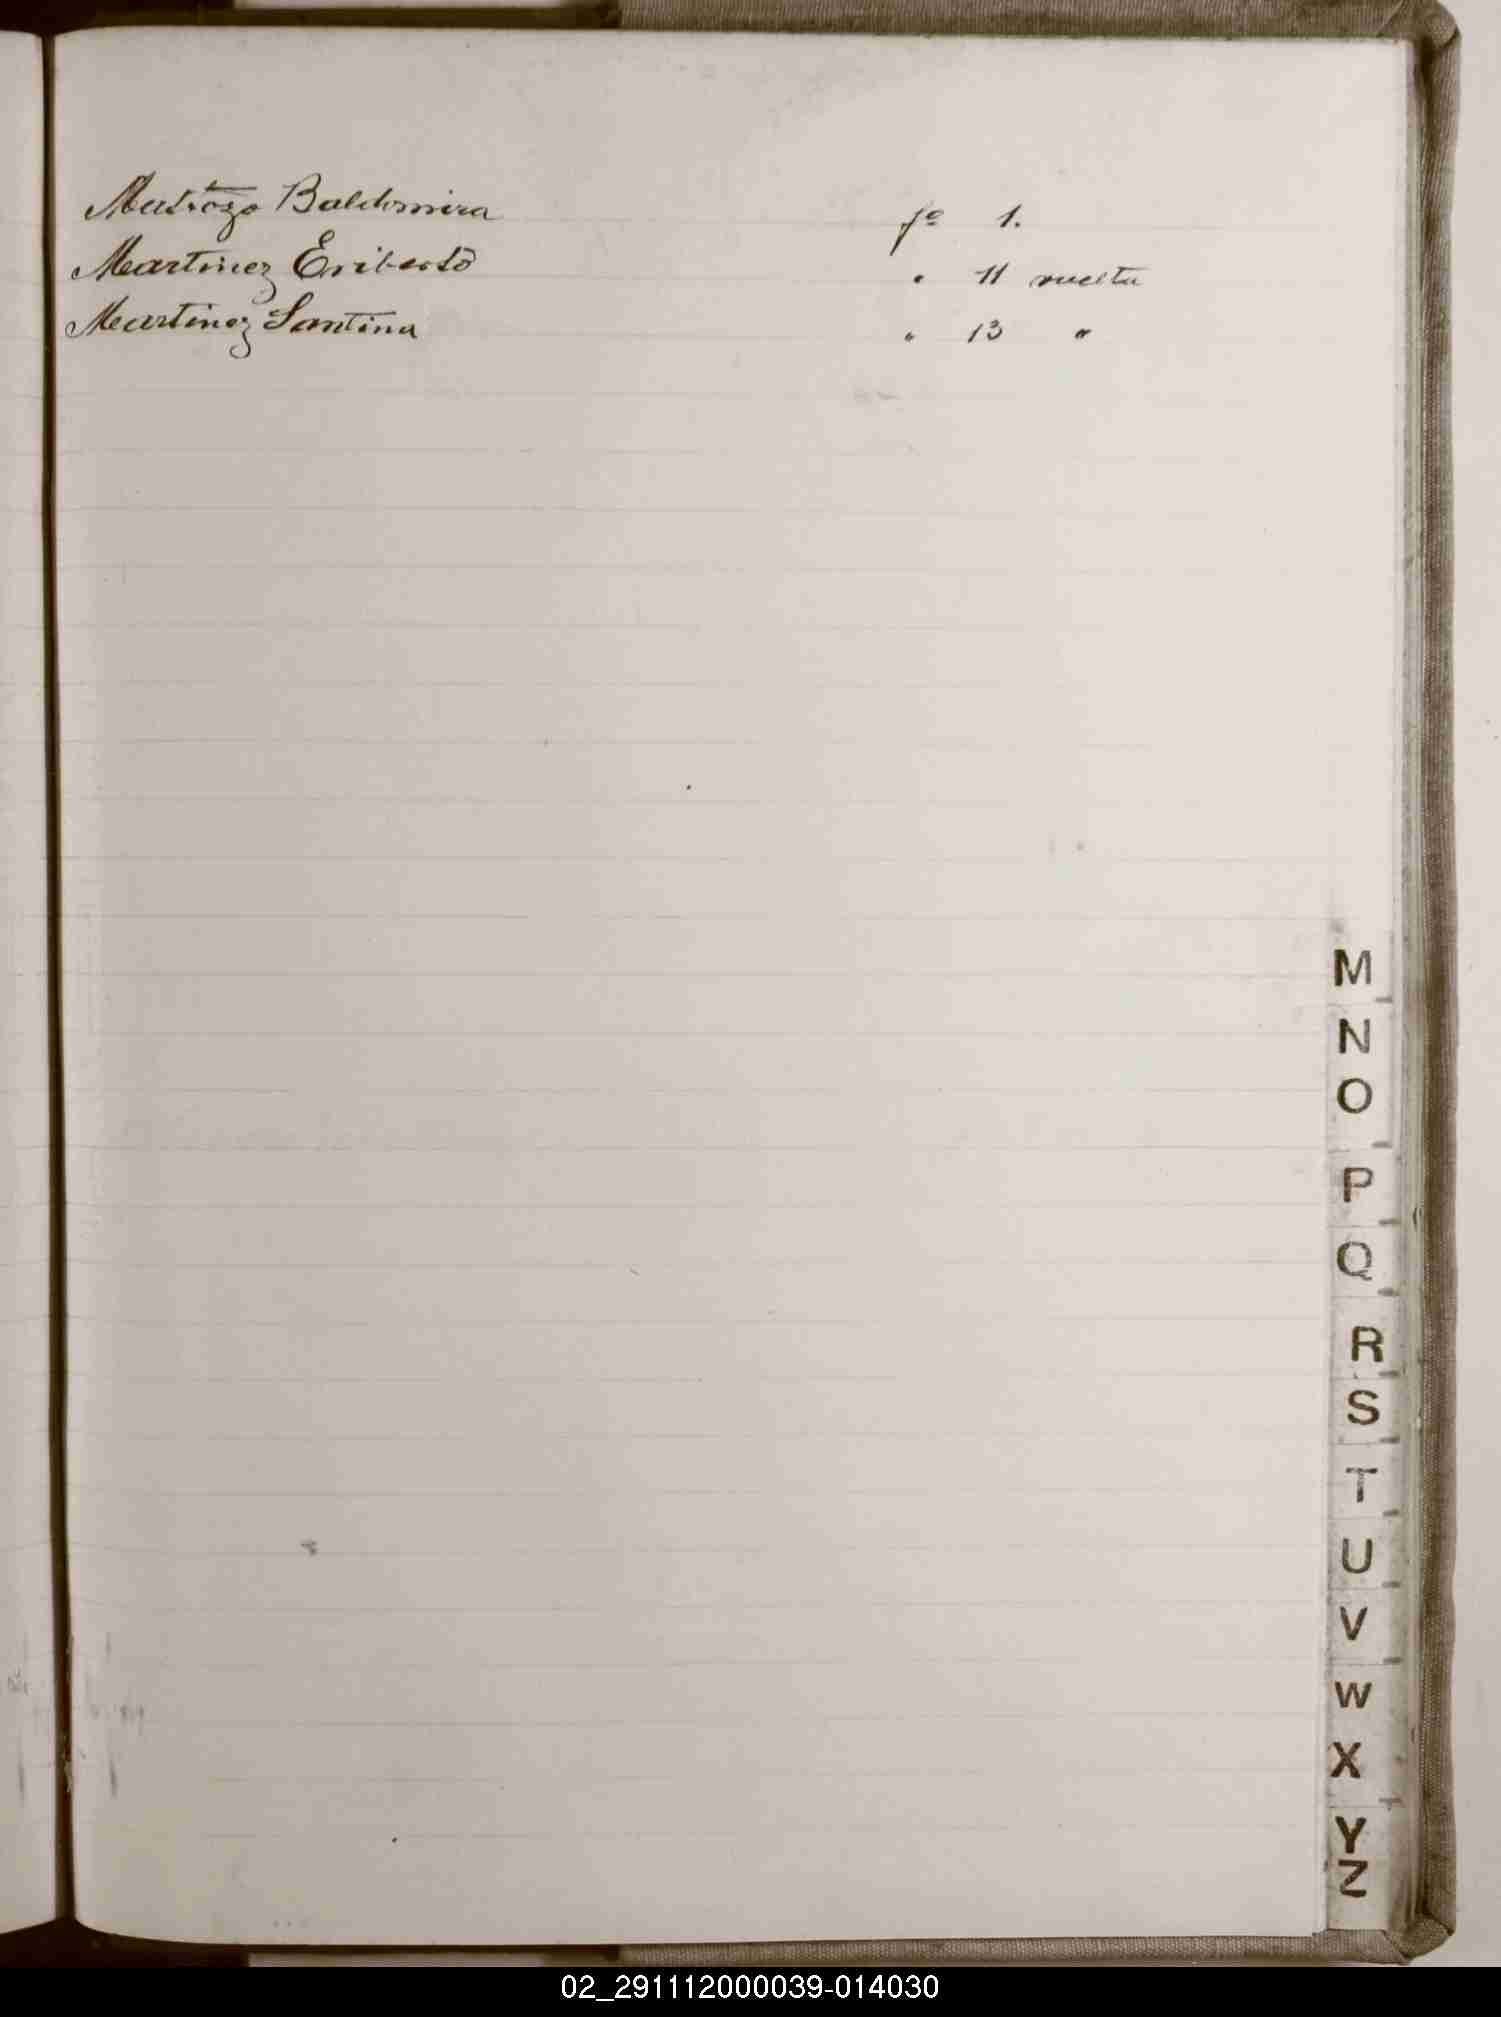 Matrozo Baldomira fo 1.
Martinez Eriberto " 11 vuelta
Martinez Santina " 13 "
M
N
O
P
Q
R
S
T
U
V
W
X
Y
Z
02_291112000039-014030